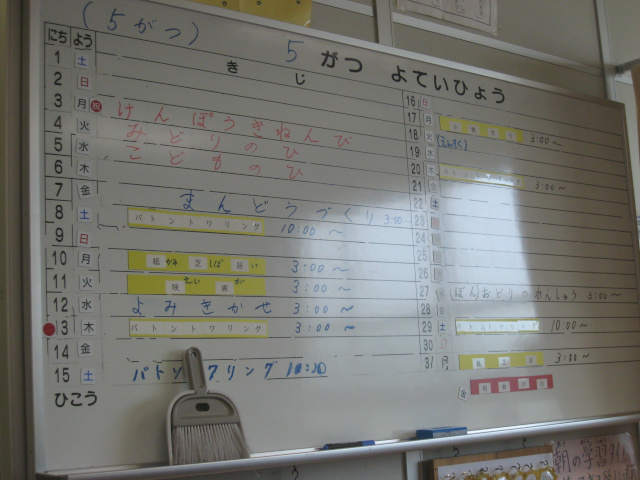 (5がつ)
5がつ よていひょう
にち よう きじ
1 土
2 日
3 月 祝 けんぽうきねんび
4 火 みどりのひ
5 水 こどものひ
6 木
7 金 まんどうづくり 3:00
8 土 バトントワリング 10:00〜
9 日
10 月 紙かみ芝しば居い 3:00〜
11 火 映えい画が 3:00〜
12 水 よみきかせ 3:00〜
13 木 バトントワリング 3:00〜
14 金
15 土 バトントワリング 10:10
びこう
16 日
17 月 3:00〜
18 火 (えんそく)
19 水
20 木 3:00〜
21 金
22 土
23
24
25
26
27 ぼんおどりのれんしゅう 3:00〜
28
29 土 バトントワリング 10:00〜
30
31 月 3:00〜
朝の学習タイム